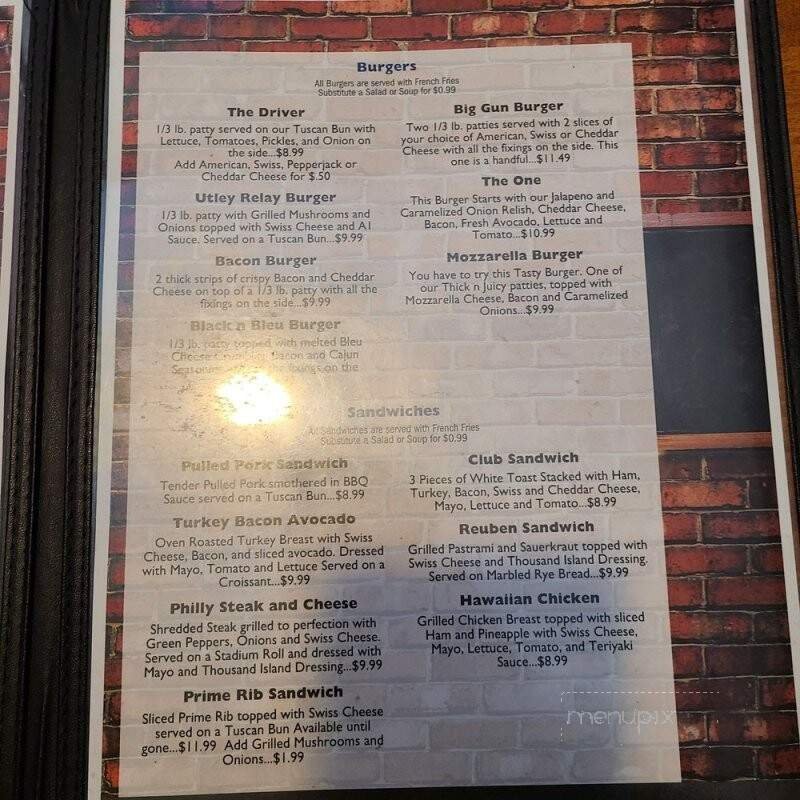 Burgers
All Burgers are served with French Fries
Substitute a Salad or Soup for $0.99
The Driver
1/3 lb. patty served on our Tuscan Bun with
Lettuce, Tomatoes, Pickles, and Onion on
the side...$8.99
Add American, Swiss, Pepperjack or
Cheddar Cheese for $.50
Utley Relay Burger
1/3 lb. patty with Grilled Mushrooms and
Onions topped with Swiss Cheese and A1
Sauce. Served on a Tuscan Bun...$9.99
Bacon Burger
2 thick strips of crispy Bacon and Cheddar
Cheese on top of a 1/3 lb. patty with all the
fixings on the side...$9.99
Black n Bleu Burger
1/3 lb. patty topped with melted Bleu
Cheese Bacon and Cajun
fixings on the
Big Gun Burger
Two 1/3 lb. patties served with 2 slices of
your choice of American, Swiss or Cheddar
Cheese with all the fixings on the side. This
one is a handful...$11.49
The One
This Burger Starts with our Jalapeno and
Caramelized Onion Relish, Cheddar Cheese,
Bacon, Fresh Avocado, Lettuce and
Tomato...$10.99
Mozzarella Burger
You have to try this Tasty Burger. One of
our Thick n Juicy patties, topped with
Mozzarella Cheese, Bacon and Caramelized
Onions...$9.99
Sandwiches
All Sandwiches are served with French Fries
Substitute a Salad or Soup for $0.99
Pulled Pork Sandwich
Tender Pulled Pork smothered in BBQ
Sauce served on a Tuscan Bun...$8.99
Turkey Bacon Avocado
Oven Roasted Turkey Breast with Swiss
Cheese, Bacon, and sliced avocado. Dressed
with Mayo, Tomato and Lettuce Served on a
Croissant...$9.99
Philly Steak and Cheese
Shredded Steak grilled to perfection with
Green Peppers, Onions and Swiss Cheese.
Served on a Stadium Roll and dressed with
Mayo and Thousand Island Dressing...$9.99
Prime Rib Sandwich
Sliced Prime Rib topped with Swiss Cheese
served on a Tuscan Bun Available until
gone...$11.99 Add Grilled Mushrooms and
Onions...$1.99
Club Sandwich
3 Pieces of White Toast Stacked with Ham,
Turkey, Bacon, Swiss and Cheddar Cheese,
Mayo, Lettuce and Tomato...$8.99
Reuben Sandwich
Grilled Pastrami and Sauerkraut topped with
Swiss Cheese and Thousand Island Dressing.
Served on Marbled Rye Bread...$9.99
Hawaiian Chicken
Grilled Chicken Breast topped with sliced
Ham and Pineapple with Swiss Cheese,
Mayo, Lettuce, Tomato, and Teriyaki
Sauce...$8.99
menupix